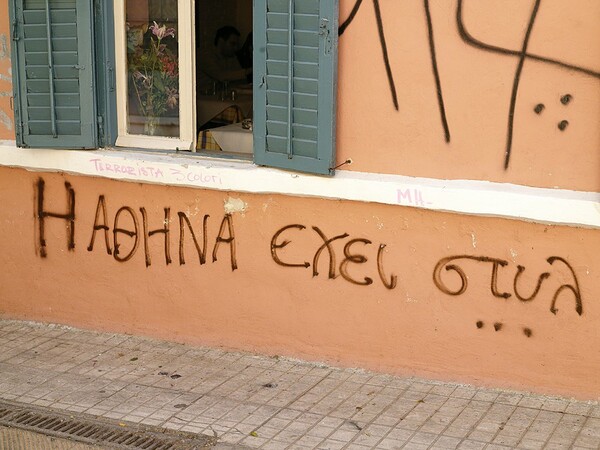 TERRORISTA 3COLORI
MH.
Η ΑΘΗΝΑ εχει στυλ...